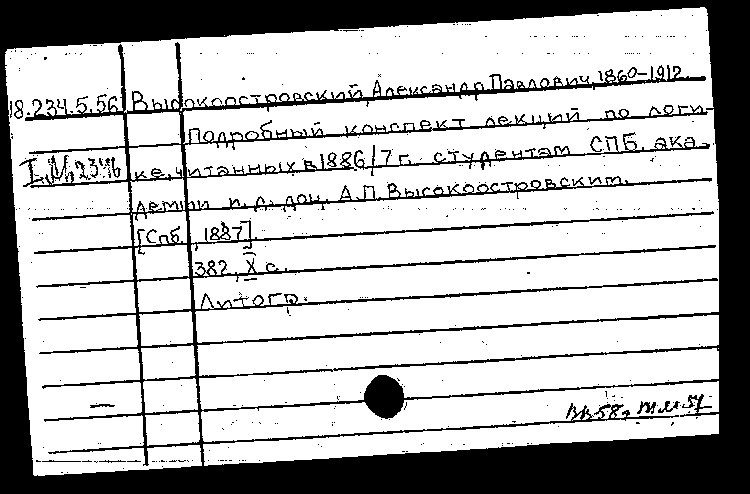 18.234.5.56 Высокоостровский, Александр Павлович, 1860-1912
Подробный конспект лекций по логи-
ке, читанных в 1886/7 г. студентам СПБ. ака-
демии и. д. доц. А.П. Высокоостровским.
[Спб., 1887].
382, X с.
Литогр.